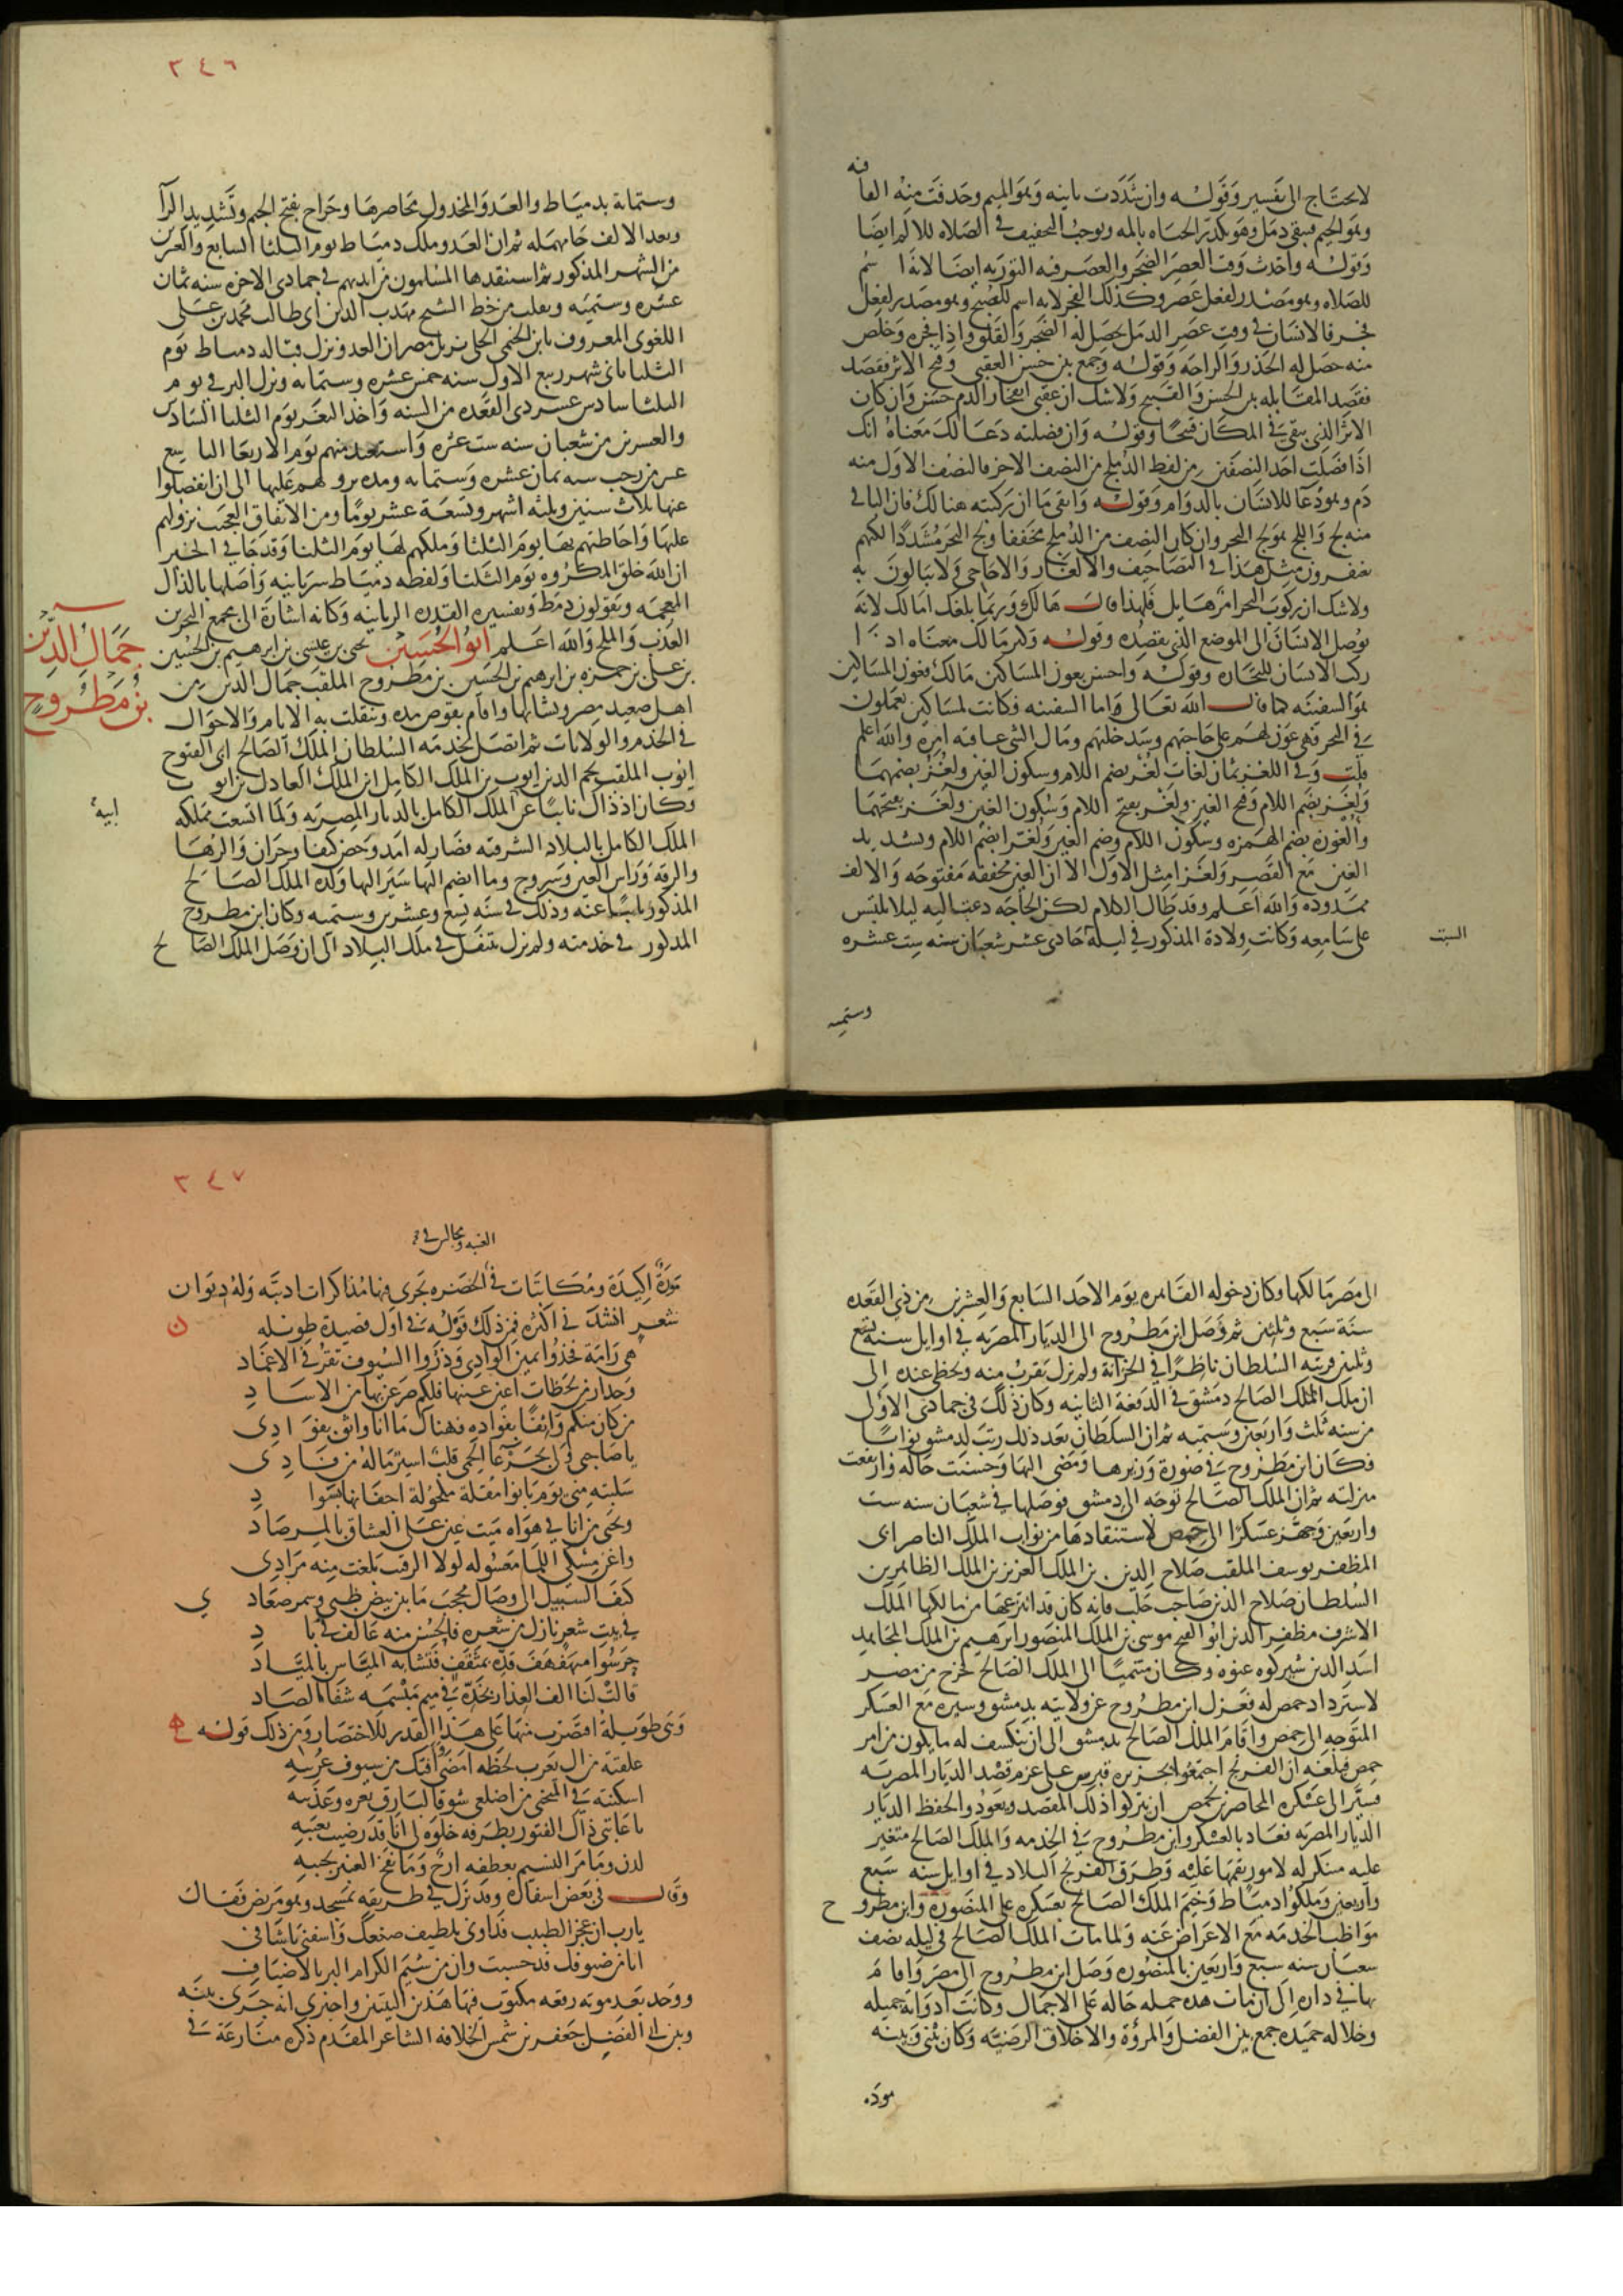 لا يحتاج الى تفسير وقوله وان شددت ثانيه وهو الميم وحذفت منه الفا
فه
وهو الجيم فيبقى دمل وهو يكدر الحياه بالمه ويوجب التخفيف في الصلاه للالم ايضا
وقوله واخذت وقت العصر الضجر والعصر فيه التوريه ايضا لانه اسم
للصلاه وهو مصدر لفعل عصر وكذلك الفجر لانه اسم للصبح وهو مصدر لفعل
فجر فالانسان في وقت عصر الدمل يحصل له الضجر والقلق واذا فجره وخلص
منه حصل له الخدر والراحه وقوله وجمع بين حسن العقبى وقبح الاثر فقصد
فقصد المقابله بين الحسن والقبيح ولا شك ان عقبى انفجار الدم حسن وان كان
الاثر الذي يبقى في المكان قبيحا وقوله وان فصلته دعا لك معناه انك
اذا فصلت احد النصفين من لفظ الدملج من النصف الاخر فالنصف الاول منه
دم وهو دعا للانسان بالدوام وقوله وابقى ما ان ركبته هنالك فان الباقي
منه لج واللج موج البحر وان كان النصف من الدملج مخففا ولج البحر مشددا لكنهم
يغفرون مثل هذا في التصاحيف والالغاز والاحاجي ولا يبالون به
ولا شك ان ركوب البحر امر هايل فلهذا قال هالك وربما بلغك امالك لانه
يوصل الانسان الى الموضع الذي يقصده وقوله وكثر مالك معناه اذا
ركب الانسان للتجاره وقوله واحسن بعون المساكين مالك فعون المساكين
هو السفينه كما قال الله تعالى واما السفينه فكانت لمساكين يعملون
في البحر فهي عون لهم على حاجتهم وسد خلتهم ومال الشي عاقبه امره والله اعلم
قلت وفي اللغز ثمان لغات لغز بضم اللام وسكون الغين ولغز بضمهما
ولغز بضم اللام وفتح الغين ولغز بفتح اللام وسكون الغين ولغز بفتحهما
والغوزه بضم الهمزه وسكون اللام وضم الغين ولغيزا بضم اللام وتشديد
الغين مع القصر ولغيزا مثل الاول الا ان الغين مخففه مفتوحه والالف
ممدوده والله اعلم وقد طال الكلام لكن الحاجه دعت اليه ليلا يلتبس
على سامعه وكانت ولادة المذكور في ليلة حادي عشر شعبان سنه ست عشره
السبت
وستميه
٣٤٦
وستمايه بدمياط والعدو المخذول يحاصرها وجراح بفتح الجيم وتشديد الرآ
وبعد الالف حا مهمله ثم ان العدو ملك دمياط يوم الثلثا السابع والعشرين
من الشهر المذكور ثم استنقذها المسلمون من ايديهم في جمادى الاخره سنه ثمان
عشره وستميه ونقلت من خط الشيخ مهذب الدين ابي طالب محمد بن علي
اللغوي المعروف بابن الخيمي الحلي نزيل مصر ان العدو نزل قباله دمياط يوم
الثلثا ثاني شهر ربيع الاول سنه خمس عشره وستمايه ونزل البر في يوم
الثلثا سادس عشر ذي القعده من السنه واخذ الثغر يوم الثلثا السادس
والعشرين من شعبان سنه ست عشره واستعيد منهم يوم الاربعا التاسع
عشر من رجب سنه ثمان عشره وستمايه ومده نزولهم عليها الى ان انفصلوا
عنها ثلاث سنين وثلثه اشهر وتسعة عشر يوما ومن الاتفاق العجيب نزولهم
عليها واحاطتهم بها يوم الثلثا وملكهم لها يوم الثلثا وقد جا في الخبر
ان الله خلق المكروه يوم الثلثا ولفظه دمياط سريانيه واصلها بالذال
المعجمه ويقولون دمط وتفسيره القدره الربانيه وكانه اشارة الى مجمع البحرين
العذب والملح والله اعلم ابو الحسين يحيى بن عيسى بن ابرهيم بن الحسين
بن علي بن حمزه بن ابرهيم بن الحسين بن مطروح الملقب جمال الدين من
جمال الدين
بن مطروح
اهل صعيد مصر ونشا بها واقام بقوص مده وتنقلت به الايام والاحوال
في الخدم والولايات ثم اتصل بخدمه السلطان الملك الصالح ابي الفتوح
ايوب الملقب نجم الدين ايوب بن الملك الكامل ابن الملك العادل بن ايوب
وكان اذ ذاك نايبا عن الملك الكامل بالديار المصريه ولما اتسعت مملكه
ابيه
الملك الكامل بالبلاد الشرقيه فصار له امد وحصن كيفا وحران والرها
والرقه وراس العين وسروج وما انضم اليها سير اليها ولده الملك الصالح
المذكور نايبا عنه وذلك في سنه تسع وعشرين وستميه وكان ابن مطروح
المذكور في خدمته ولم يزل يتنقل في ملك البلاد الى ان وصل الملك الصالح
الى مصر مالكها وكان دخوله القاهره يوم الاحد السابع والعشرين من ذي القعده
سنة سبع وثلثين ثم وصل ابن مطروح الى الديار المصريه في اوايل سنة تسع
وثلثين فرتبه السلطان ناظرا في الخزانة ولم يزل يقرب منه ويحظى عنده الى
ان ملك الملك الصالح دمشق في الدفعة الثانيه وكان ذلك في جمادى الاولى
من سنه ثلث واربعين وستميه ثم ان السلطان بعد ذلك رتب لدمشق نوابا
فكان ابن مطروح في صورة وزيرها ومضى اليها وحسنت حاله وارتفعت
منزلته ثم ان الملك الصالح توجه الى دمشق فوصلها في شعبان سنه ست
واربعين وجهز عسكرا الى حمص لاستنقاذها من نواب الملك الناصر ابي
المظفر يوسف الملقب صلاح الدين بن الملك العزيز بن الملك الظاهر بن
السلطان صلاح الدين صاحب حلب فانه كان قد انتزعها من مالكها الملك
الاشرف مظفر الدين ابو الفتح موسى بن الملك المنصور ابرهيم بن الملك المجاهد
اسد الدين شيركوه عنوه وكان منتميا الى الملك الصالح فخرج من مصر
لاسترداد حمص له فعزل ابن مطروح عن ولايته بدمشق وسيره مع العسكر
المتوجه الى حمص واقام الملك الصالح بدمشق الى ان ينكشف له ما يكون من امر
حمص فبلغه ان الفرنج اجتمعوا بجزيره قبرس على عزم قصد الديار المصريه
فسير الى عسكره المحاصرين لحمص ان يتركوا ذلك المقصد ويعودوا لحفظ الديار
الديار المصريه فعاد بالعسكر وابن مطروح في الخدمه والملك الصالح متغير
عليه متنكر له لامور نقمها عليه وطرق الفرنج البلاد في اوايل سنه سبع
واربعين وملكوا دمياط وخيم الملك الصالح بعسكره على المنصوره وابن مطروح
مواظب الخدمه مع الاعراض عنه ولما مات الملك الصالح في ليله نصف
شعبان سنه سبع واربعين بالمنصوره وصل ابن مطروح الى مصر واقام
بها في داره الى ان مات هذه جمله حاله على الاجمال وكانت ادواته جميله
وخلاله حميده جمع بين الفضل والمروة والاخلاق الرضيه وكان بيني وبينه
مودة
٣٤٧
الغيبه ومجالس في
مودة اكيدة ومكاتبات في الحضره تجري فيها مذاكرات ادبيه وله ديوان
شعر انشدني اكثره فمن ذلك قوله في اول قصيدة طويله
هي رامة فخذوا يمين الوادي وذروا السيوف تقر في الاغماد
وحذار من لحظات اعين عينها فلكم صرعن بها من الاساد
من كان منكم واثقا بفواده فهناك ما انا واثق بفوادي
يا صاحبي ولي بجرعا الحمى قلب اسير ماله من فادي
سلبته مني يوم بانوا مقلة مكحولة اجفانها بسواد
وبحي من انا في هواه ميت عين على العشاق بالمرصاد
واغن مسكي اللما معسوله لولا الرقيب بلغت منه مرادي
كيف السبيل الى وصال محجب ما بين بيض ظبى وسمر صعاد
في بيت شعر نازل من شعره فالحسن منه عاكف في باد
حرسوا مهفهف قده بمثقف فتشابه المياس بالمياد
قالت لنا الف العذار بخده في ميم مبسمه شفا الصاد
وهي طويلة اقتصرت منها على هذا القدر للاختصار ومن ذلك قوله
علقته من ال يعرب لحظه امضى وافتك من سيوف عريبه
اسكنته في المنحنى من اضلعي شوقا لبارق ثغره وعذيبه
يا عايبي ذاك الفتور بطرفه خلوه لي انا قد رضيت بعيبه
لدن وما مر النسيم بعطفه ارج وما نفح العبير بجيبه
وقال في بعض اسفاره وقد نزل في طريقه بمسجد وهو مريض فقال
يارب ان عجز الطبيب فداوني بلطيف صنعك واشفني يا شافي
انا من ضيوفك قد حسبت وان من شيم الكرام البر بالاضياف
ووجد بعد موته رقعه مكتوب فيها هذين البيتين واخبرني انه جرى بينه
وبين ابي الفضل جعفر بن شمس الخلافه الشاعر المقدم ذكره منازعة في